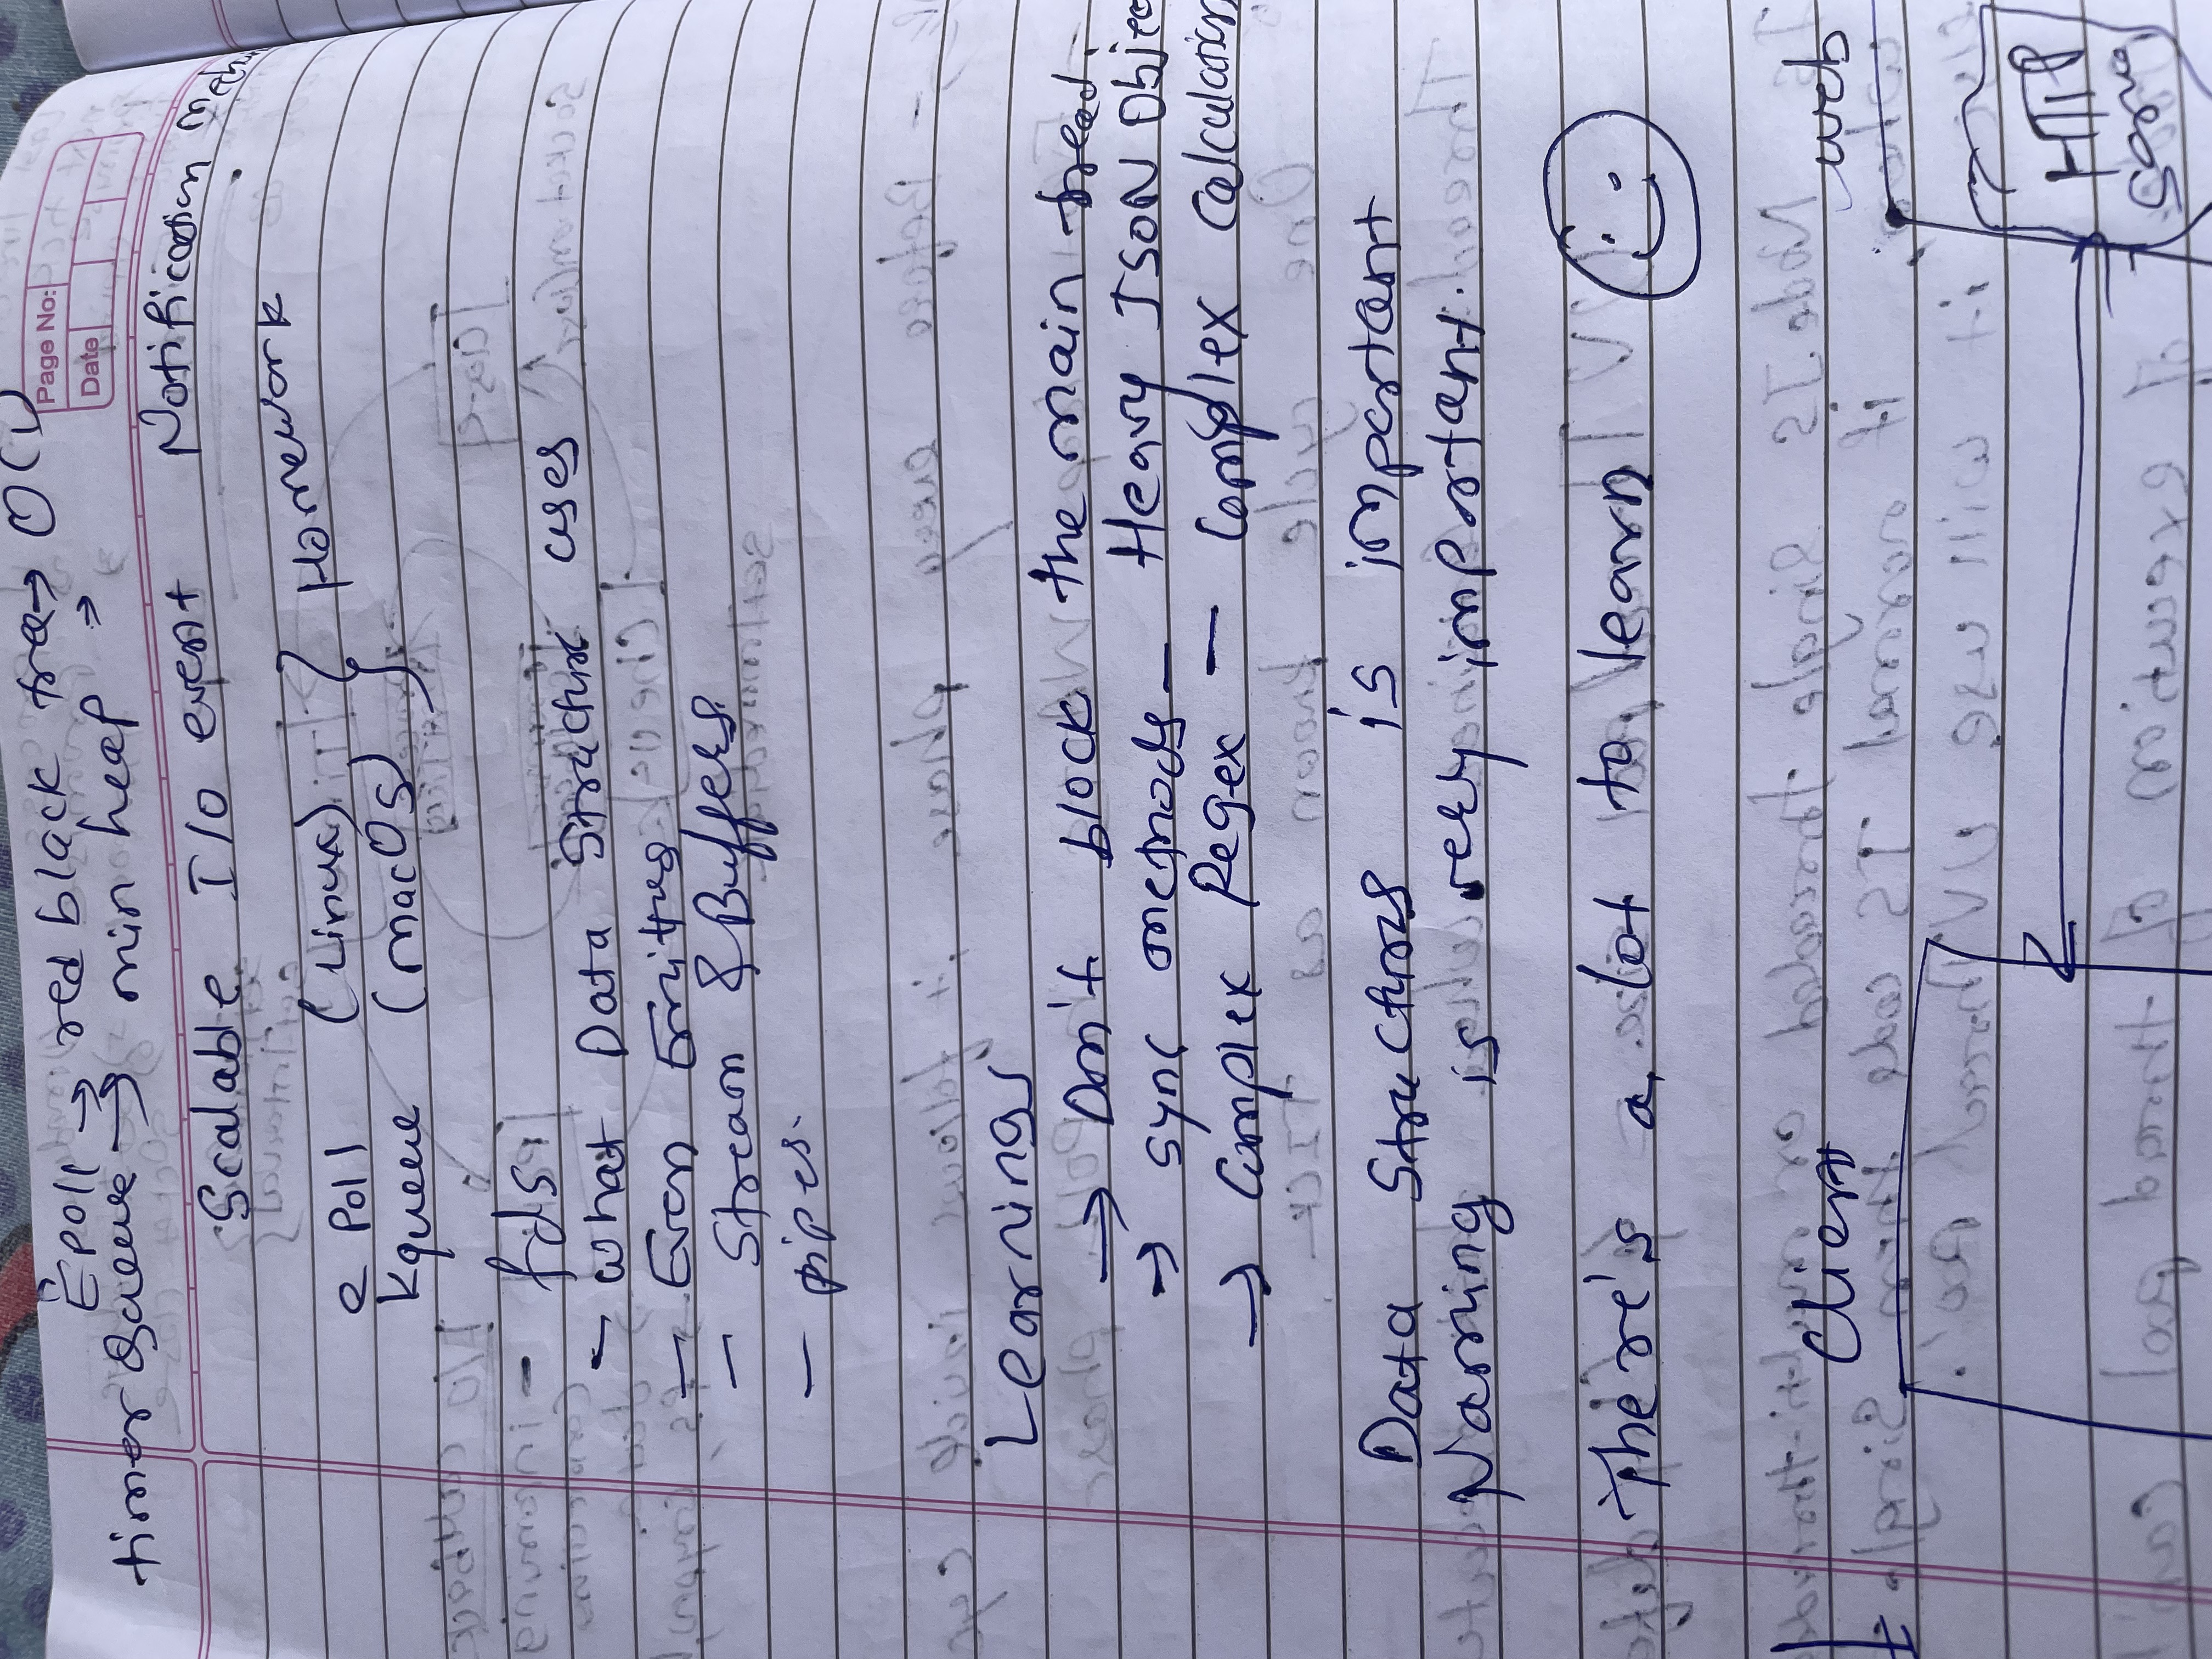 Epoll → red black tree → O(1)
Page No:
Date
timer Queue → min heap →
Scalable I/O event Notification mech
epoll (Linux) } Homework
kqueue (macOS)
- fds
- what Data Structure uses
- Even Emitters
- Stream & Buffers
- pipes.
Learnings
→ Don't block the main tread.
→ sync methods - Heavy JSON Objec
→ Complex Regex - Complex Calculation
Data Structures is important
Naming is very important.
There's a lot to learn
Client
web
HTTP